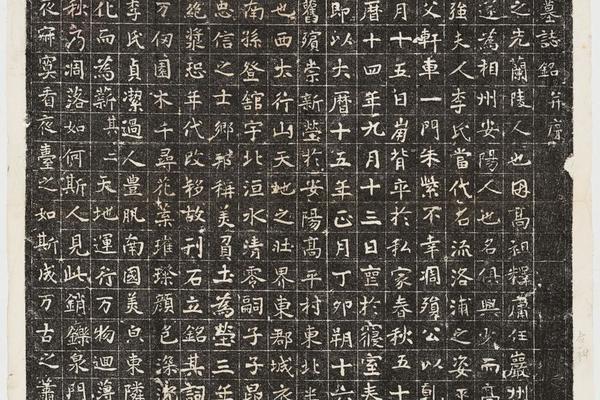 墓誌銘并序
之先蘭陵人也因高祖釋肅任巖州
遂為相州安陽人也名俱興少而高
強夫人李氏當代名流洛浦之姿平
父軒車一門朱紫不幸凋殞公以
月十五日崩背平於私家春秋五十
曆十四年九月十三日薨於寢室春
即以大曆十五年正月丁卯朔十六
舊殯崇新塋於安陽高平村東北半
也西太行山天地之壯界東郡城
南孫登舘宇北洹水清零嗣子子昂
忠信之士鄉邦稱美負土為塋三年
絕漿恐年代改移故刊石立銘其詞
万仞園木千尋花葉璀璨顏色深沉
李氏貞潔過人豊肌南國美白東隣
化而為薪其二天地運行万物迴薄
秋方凋落如何斯人見此銷鑠泉門
夜寐寞看夜臺之如斯成万古之蕭